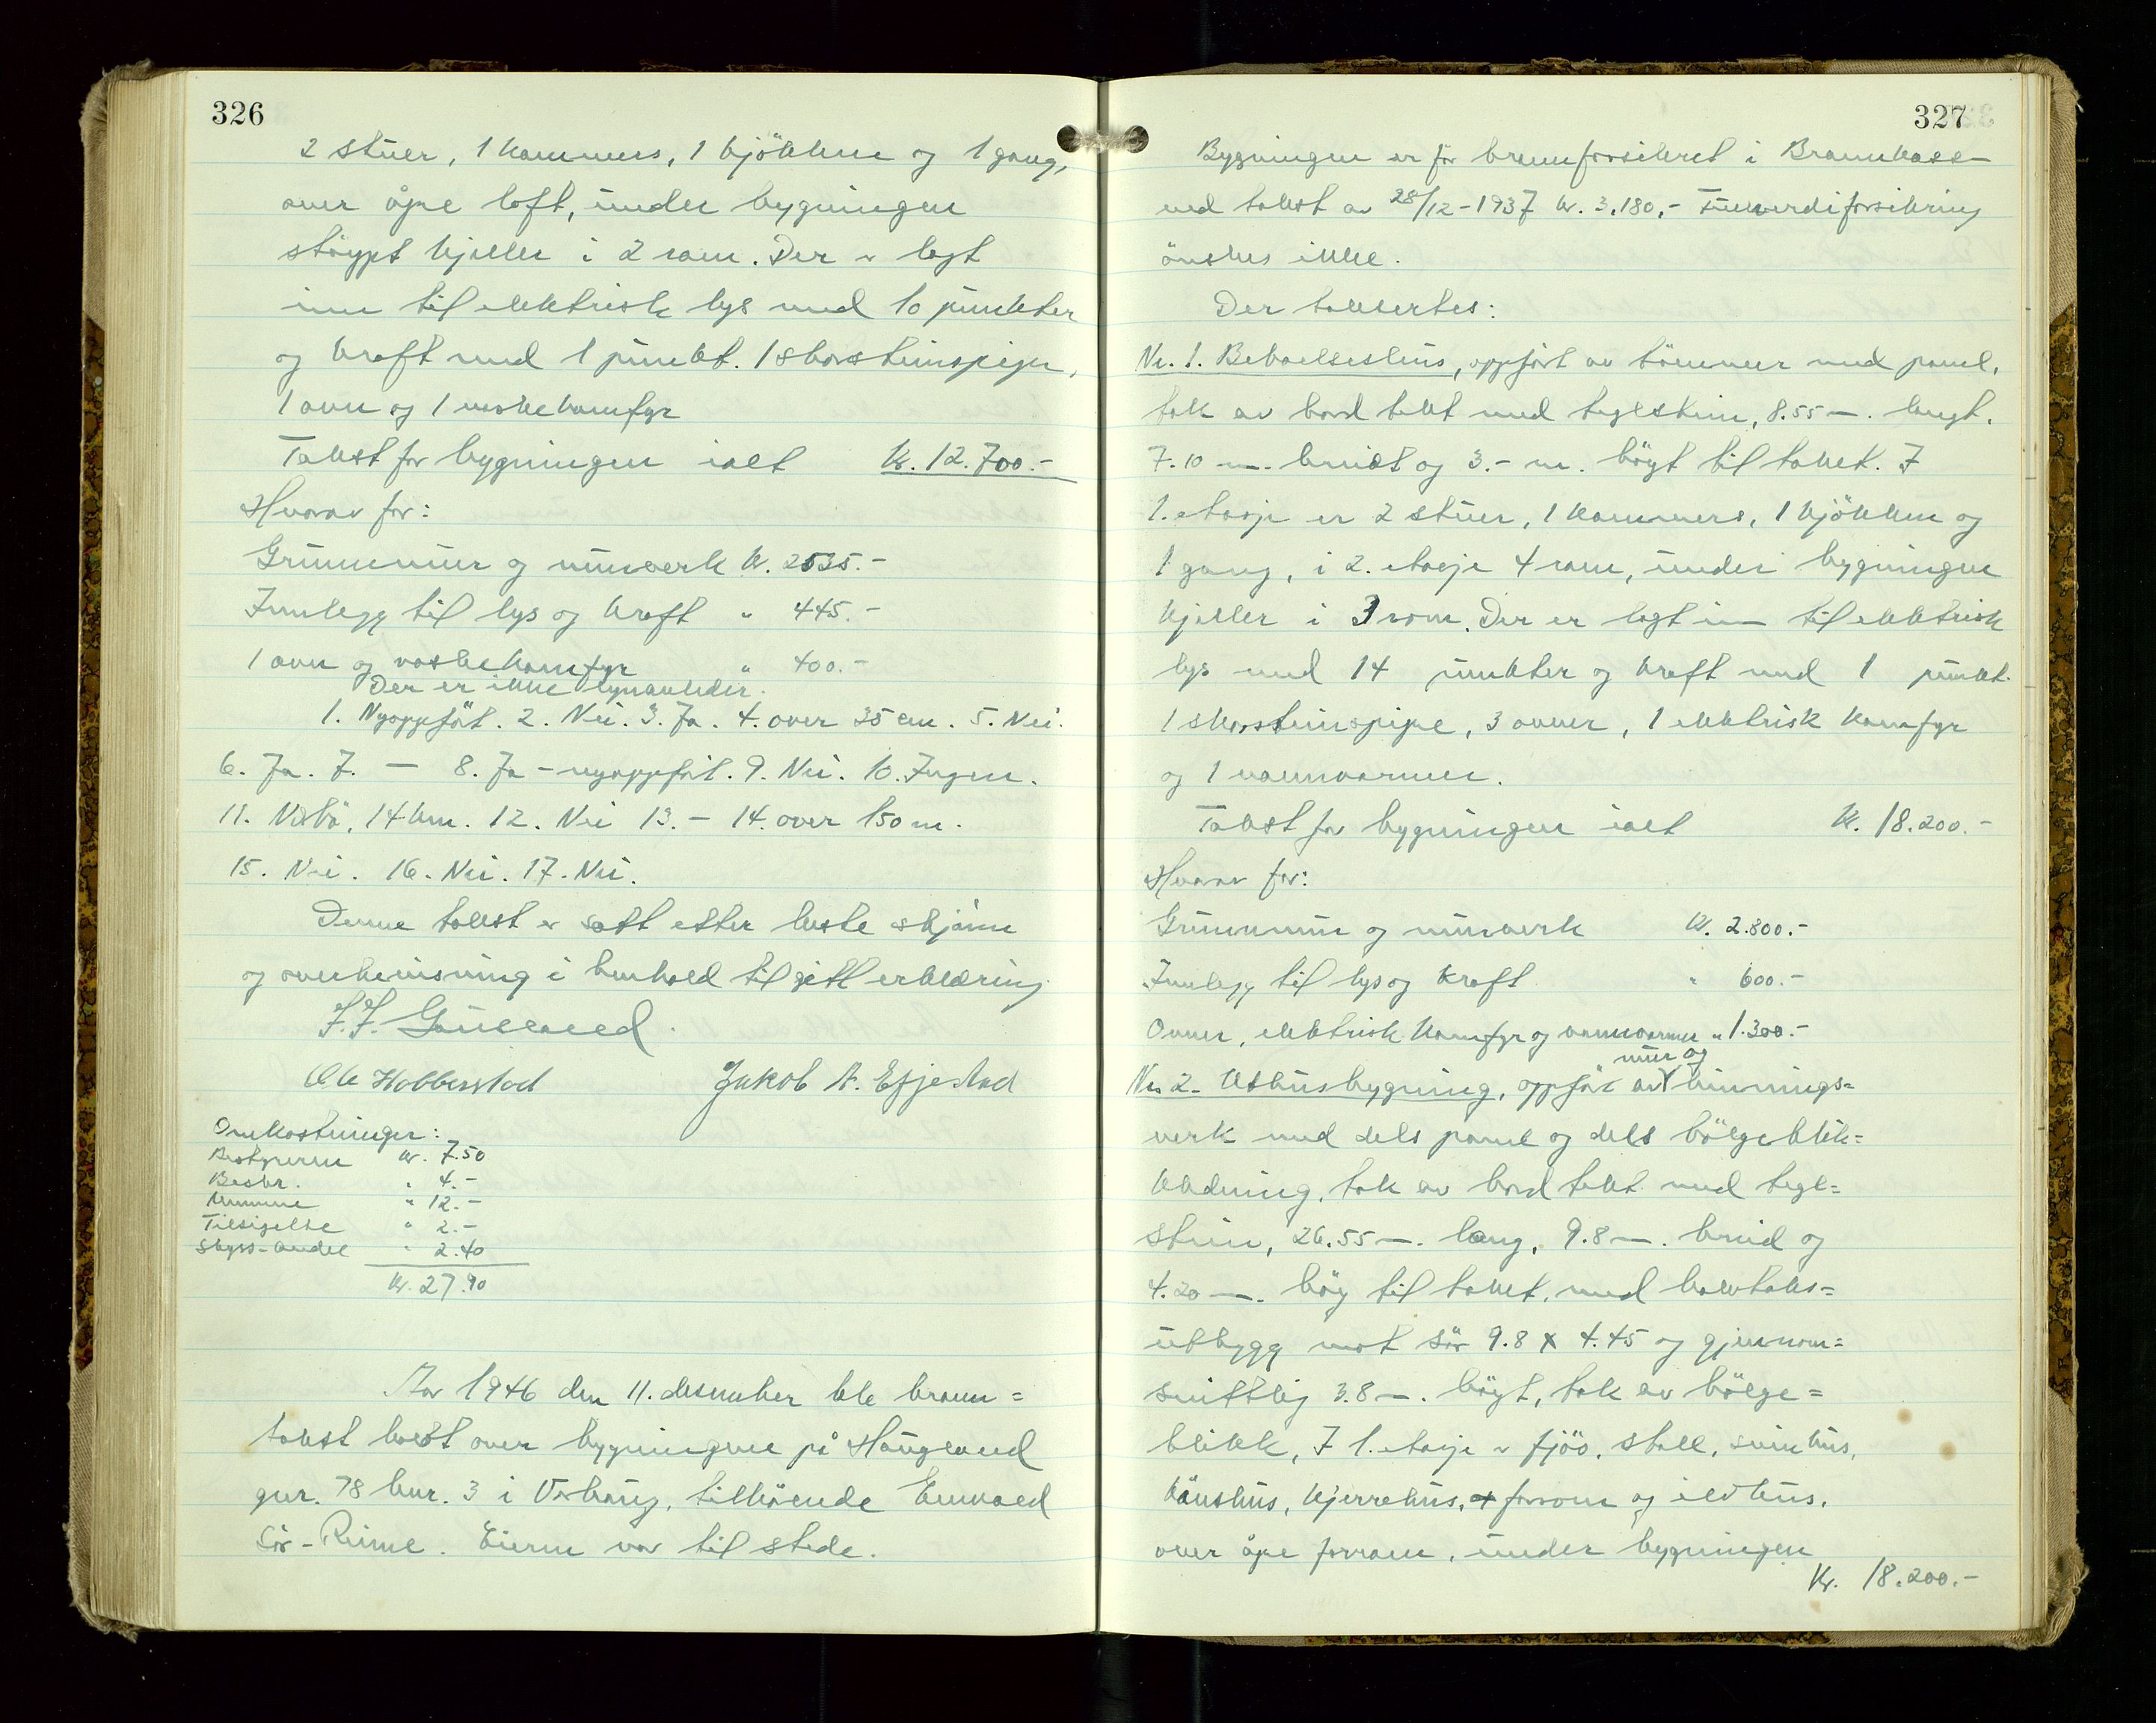 326
2 stuer, 1 kammers, 1 kjökken og 1 gang,
over åpe loft, under bygningen
støypt kjeller i 2 rom. Der er lagt
inn til elektrisk lys med 10 punkter
og kraft med 1 punkt. 1 skorsteinspipe,
1 ovn og 1 vaskekomfyr
Takst for bygningen ialt kr. 12.700.-
Hvorav for:
Grunnmur og murverk kr. 2535.-
Innlegg til lys og kraft " 445.-
1 ovn og vaskekomfyr " 400.-
Der er ikke lynavleder.
1. Nyoppført. 2. Nei. 3. Ja. 4. over 35 cm. 5. Nei.
6. Ja. 7. — 8. Ja - nyoppført. 9. Nei. 10. Ingen.
11. Nærbö, 14 km. 12. Nei 13. - 14. over 150 m.
15. Nei. 16. Nei. 17. Nei.
Denne takst er satt etter beste skjönn
og overbevisning i henhold til gitt erklæring
Ole Hobberstad Jakob A. Efjestad
Omkostninger:
Bestyreren kr. 7.50
Beskr. " 4.-
Mennene " 12.-
Tilsigelse " 2.-
Skyss-andel " 2.40
kr. 27.90
År 1946 den 11. desember ble brann=
takst holdt over bygningene på Haugland
gnr. 78 bnr. 3 i Varhaug, tilhörende
Sör-Reime. Eieren var til stede.
327
Bygningen er för brannforsikret i Brannkassen
ved takst av 28/12-1937 kr. 3.180,- Fullverdiforsikring
önskes ikke.
Der taksertes:
Nr. 1. Beboelseshus, oppfört av tömmer med panel,
tak av bord tekt med teglstein, 8.55 m. langt,
7.10 m. breidt og 3.- m. högt til taket. I
1. etasje er 2 stuer, 1 kammers, 1 kjökken og
1 gang, i 2. etasje 4 rom, under bygningen
kjeller i 3 rom. Der er lagt inn til elektrisk
lys med 14 punkter og kraft med 1 punkt.
1 skorsteinspipe, 3 ovner, 1 elektrisk komfyr
og 1 vannvarmer.
Takst for bygningen ialt kr. 18.200.-
Hvorav for:
Grunnmur og murverk kr. 2.800.-
Innlegg til lys og kraft " 600.-
Ovner, elektrisk komfyr og vannvarmer " 1.300.-
mur og
Nr. 2. Uthusbygning, oppfört av binnings=
verk med dels panel og dels bölgeblikk=
kledning, tak av bord tekt med tegl=
stein, 26.55 m. lang, 9.8 m. breid og
4.20 m. hög til taket, med halvtaks=
utbygg mot sör 9.8 x 4.45 og gjennom=
snittlig 3.8 m. högt, tak av bölge=
blikk, I 1. etasje er fjös, stall, svinhus,
hönshus, kjerrehus, forrom og ildhus,
over åpe forrom, under bygningen
kr. 18.200.-